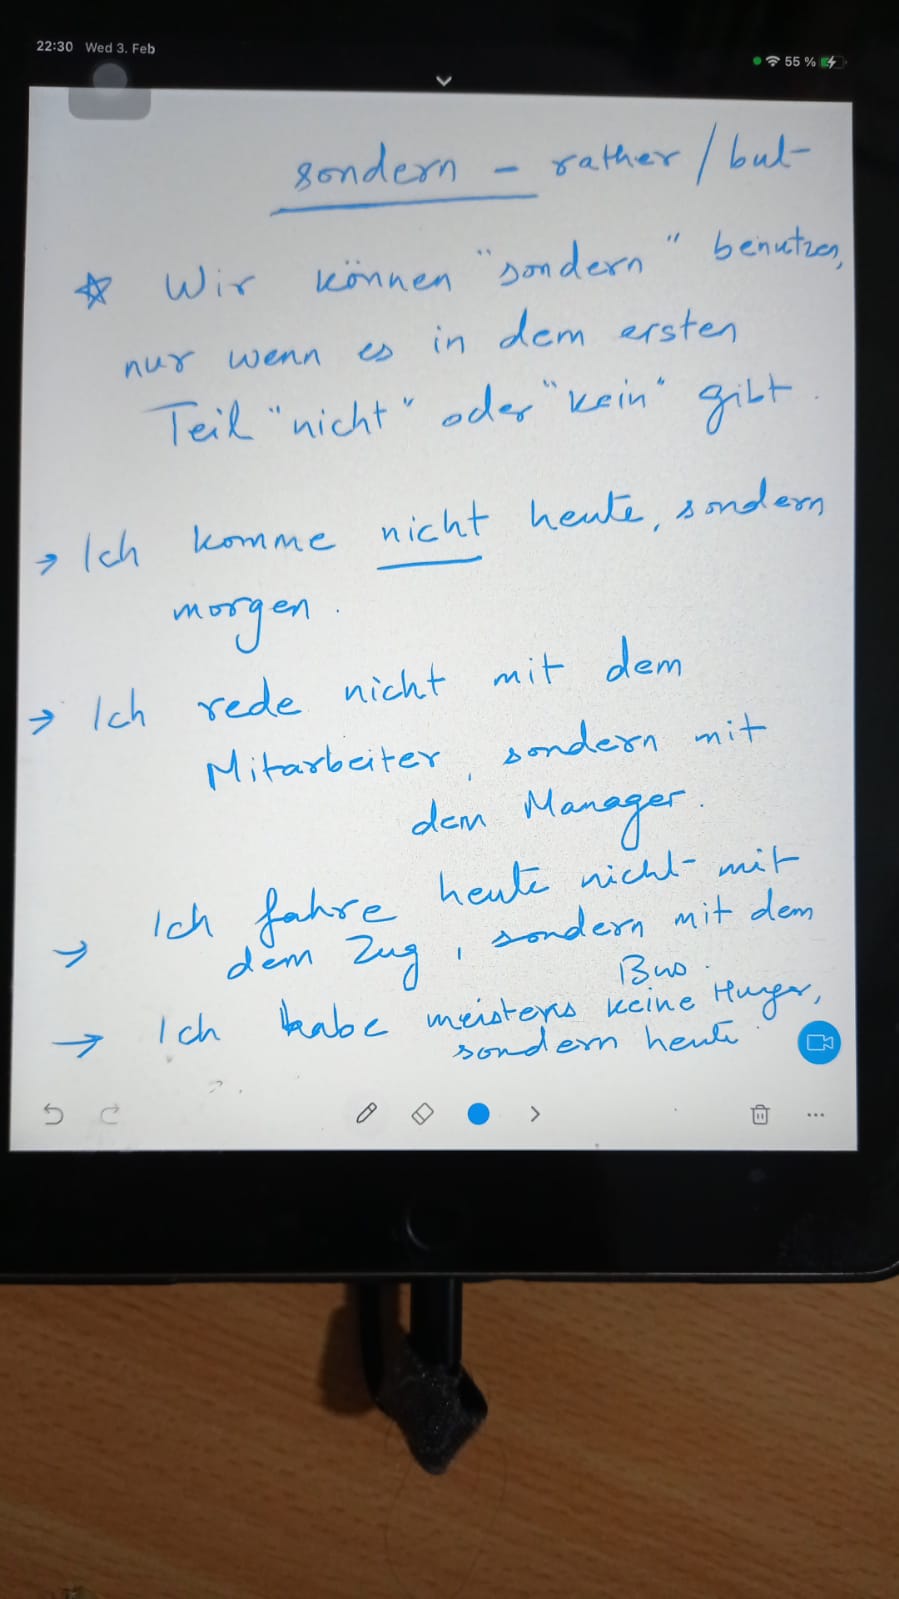 22:30 Wed 3. Feb
55 %
sondern - rather / but
☆ Wir können "sondern" benutzen,
nur wenn es in dem ersten
Teil "nicht" oder "kein" gibt.
→ Ich komme nicht heute, sondern
morgen.
→ Ich rede nicht mit dem
Mitarbeiter, sondern mit
dem Manager.
→ Ich fahre heute nicht mit
dem Zug, sondern mit dem
Bus.
→ Ich habe meistens keine Hunger,
sondern heute.